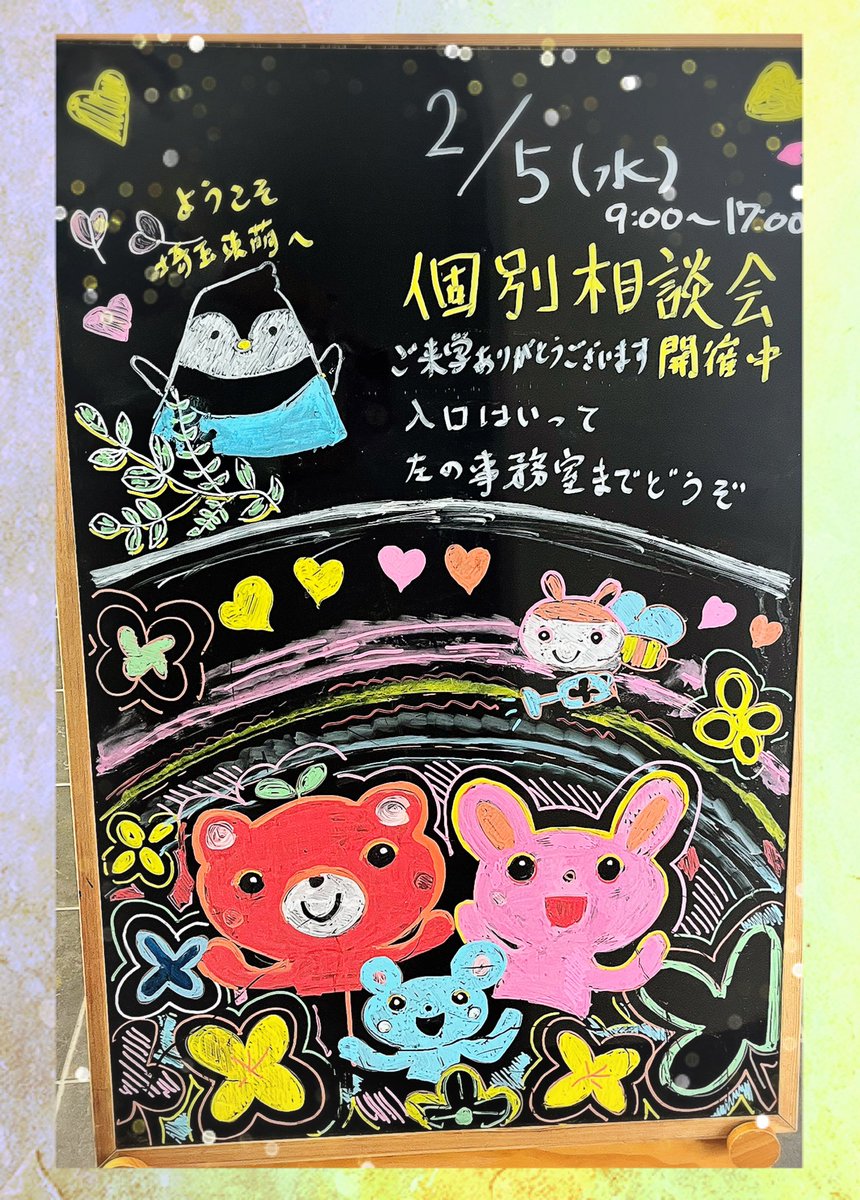 2/5(水)
9:00〜17:00
ようこそ
埼玉東萌へ
個別相談会
ご来学ありがとうございます 開催中
入口はいって
左の事務室までどうぞ